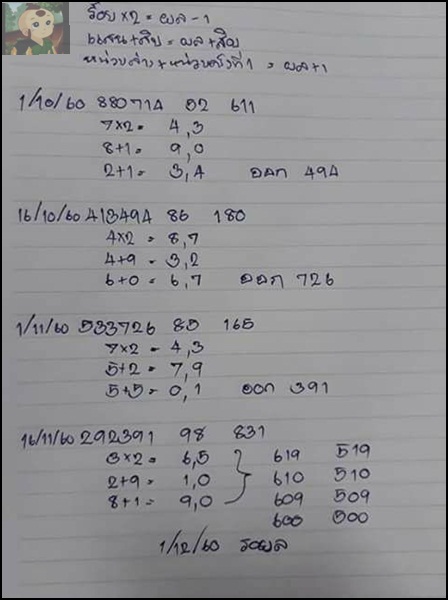 ร้อย x 2 = ผล - 1
แสน + สิบ = ผล + สิบ
หน่วยล่าง + หน่วยครั้งที่ 1 = ผล + 1
1/10/60 880714 02 611
7x2 = 4,3
8+1 = 9,0
2+1 = 3,4 ออก 494
16/10/60 413494 86 180
4x2 = 8,7
4+9 = 3,2
6+0 = 6,7 ออก 726
1/11/60 533726 85 165
7x2 = 4,3
5+2 = 7,9
5+5 = 0,1 ออก 391
16/11/60 292391 98 831
3x2 = 6,5 619 519
2+9 = 1,0 610 510
8+1 = 9,0 609 509
600 500
1/12/60 รอผล